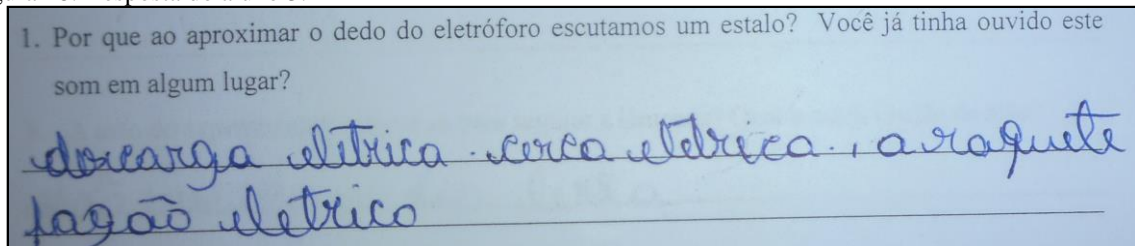 1. Por que ao aproximar o dedo do eletróforo escutamos um estalo? Você já tinha ouvido este
som em algum lugar?
descarga elitrica. cerca eletrica., a raquete
fagão eletrico